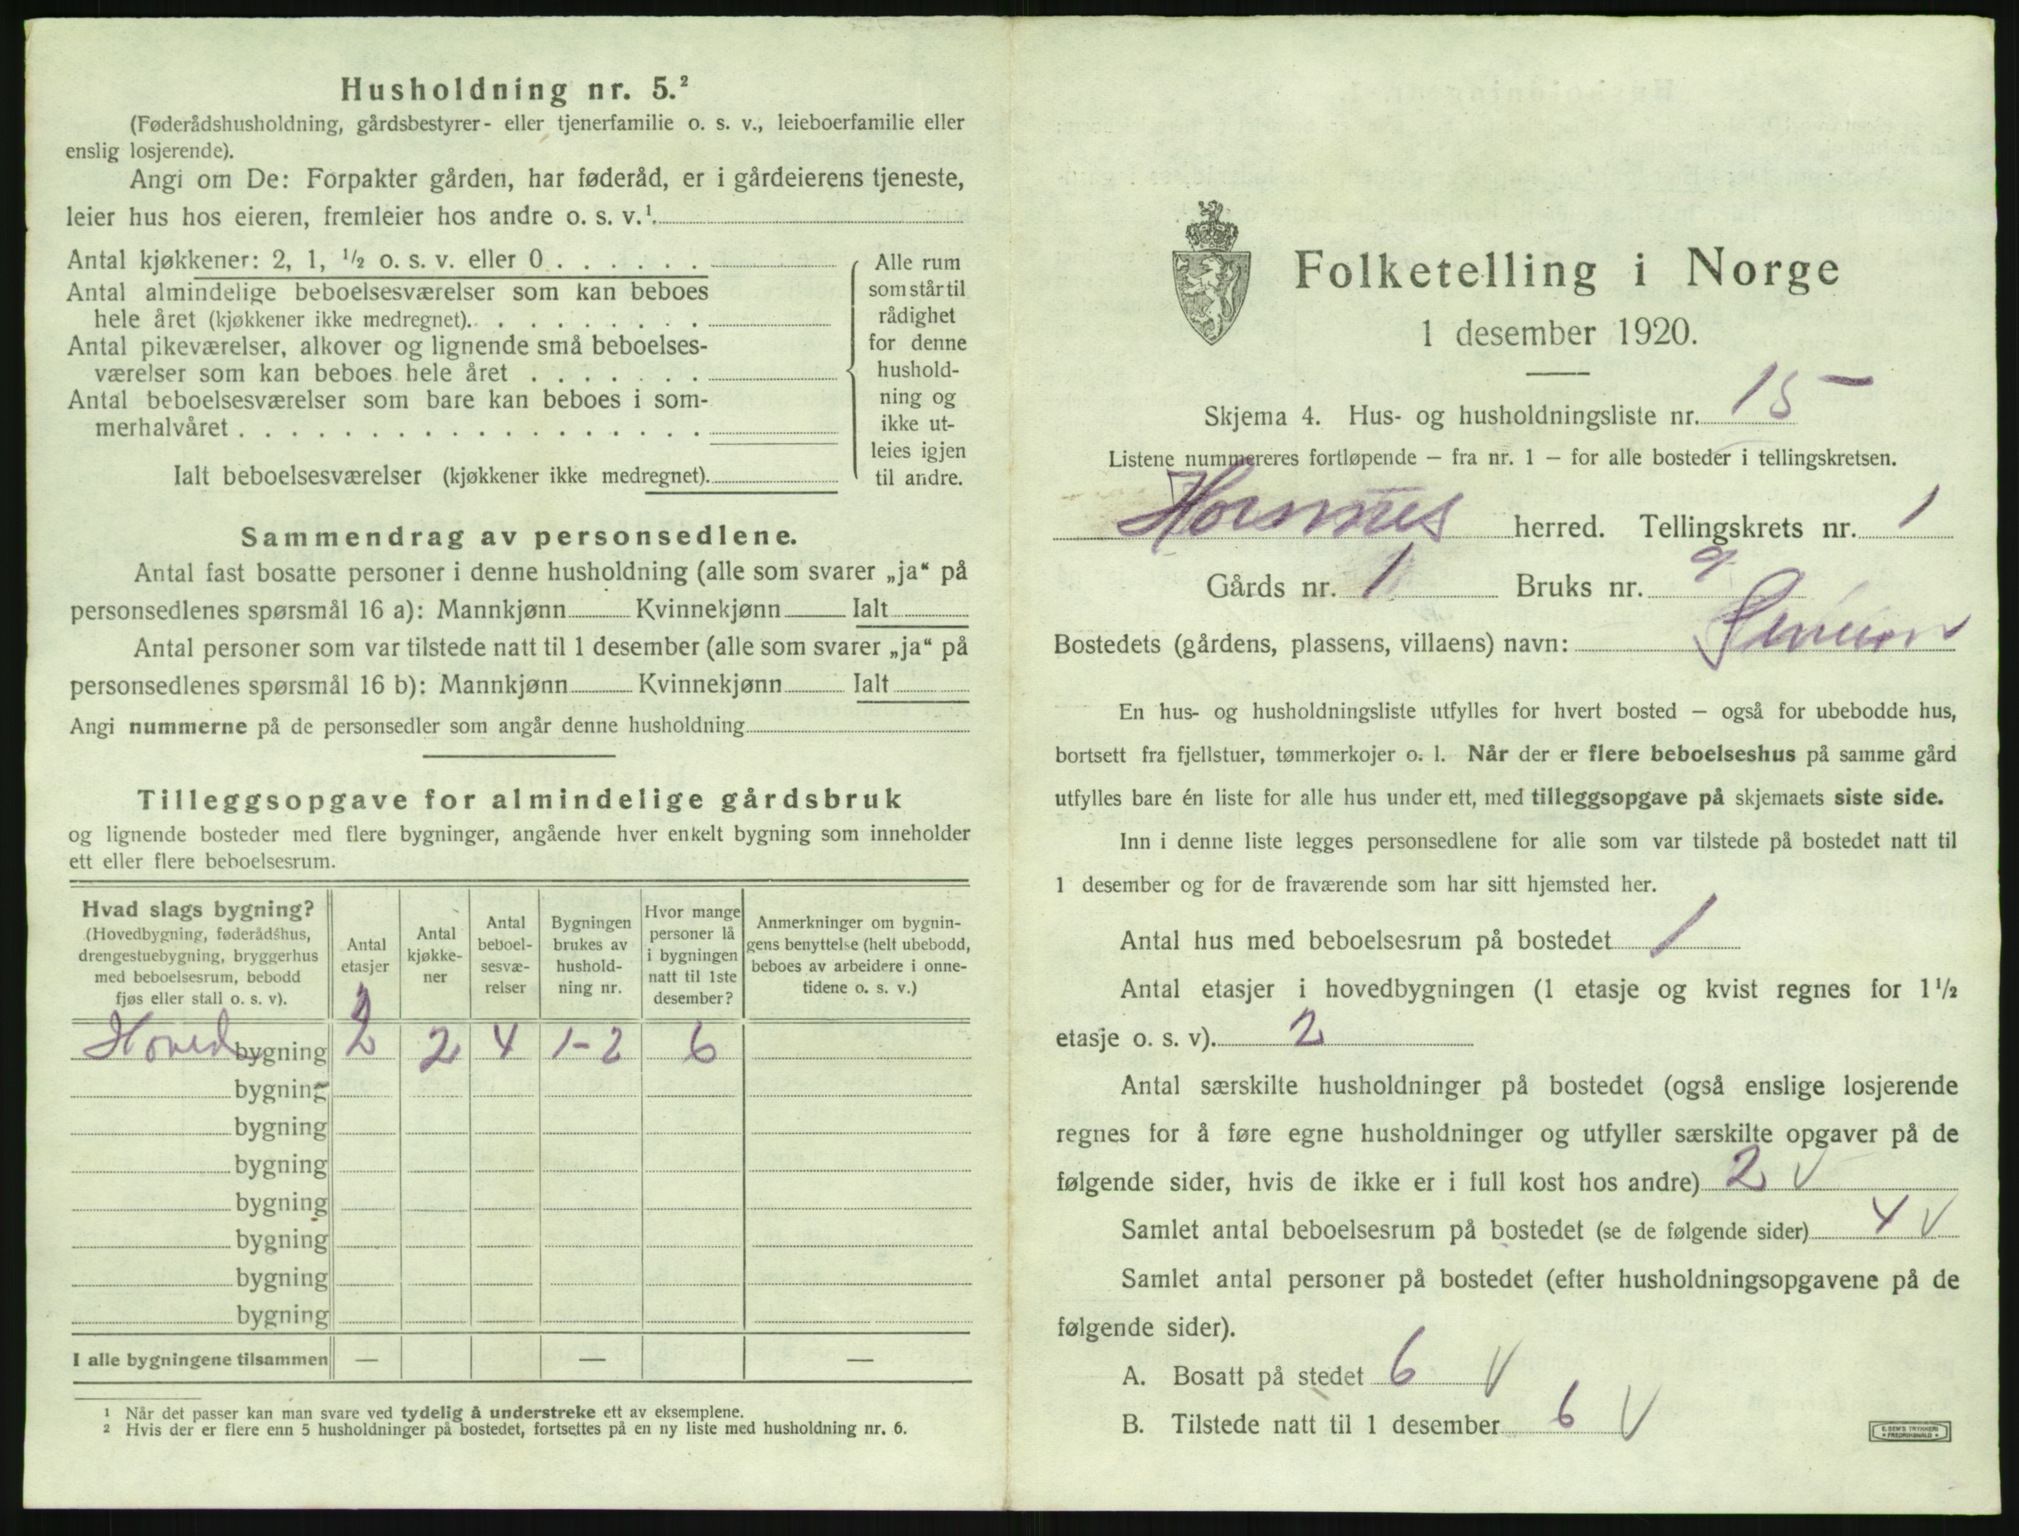 Husholdning nr. 5.²
(Føderådshusholdning, gårdsbestyrer- eller tjenerfamilie o. s. v., leieboerfamilie eller
enslig losjerende).
Angi om De: Forpakter gården, har føderåd, er i gårdeierens tjeneste,
leier hus hos eieren, fremleier hos andre o. s. v.¹
Antal kjøkkener: 2, 1, ½ o. s. v. eller 0 . . . . . .
Antal almindelige beboelsesværelser som kan beboes
hele året (kjøkkener ikke medregnet). . . . . . . . .
Antal pikeværelser, alkover og lignende små beboelses-
værelser som kan beboes hele året . . . . . . .
Antal beboelsesværelser som bare kan beboes i som-
merhalvåret . . . . . . . . . . . . . . . . . .
Ialt beboelsesværelser (kjøkkener ikke medregnet).
Alle rum
som står til
rådighet
for denne
hushold-
ning og
ikke ut-
leies igjen
til andre.
Sammendrag av personsedlene.
Antal fast bosatte personer i denne husholdning (alle som svarer „ja“ på
personsedlenes spørsmål 16 a): Mannkjønn Kvinnekjønn Ialt
Antal personer som var tilstede natt til 1 desember (alle som svarer „ja“ på
personsedlenes spørsmål 16 b): Mannkjønn Kvinnekjønn Ialt
Angi nummerne på de personsedler som angår denne husholdning
Tilleggsopgave for almindelige gårdsbruk
og lignende bosteder med flere bygninger, angående hver enkelt bygning som inneholder
ett eller flere beboelsesrum.
Hvad slags bygning?
(Hovedbygning, føderådshus,
drengestuebygning, bryggerhus
med beboelsesrum, bebodd
fjøs eller stall o. s. v).
Antal
etasjer
Antal
kjøkke-
ner
Antal
beboel-
sesvæ-
relser
Bygningen
brukes av
hushold-
ning nr.
Hvor mange
personer lå
i bygningen
natt til 1ste
desember?
Anmerkninger om bygnin-
gens benyttelse (helt ubebodd,
beboes av arbeidere i onne-
tidene o. s. v.)
Hoved bygning 2 2 4 1-2 6
bygning
bygning
bygning
bygning
bygning
bygning
bygning
I alle bygningene tilsammen — — —
¹ Når det passer kan man svare ved tydelig å understreke ett av eksemplene.
² Hvis der er flere enn 5 husholdninger på bostedet, fortsettes på en ny liste med husholdning nr. 6.
Folketelling i Norge
1 desember 1920.
Skjema 4. Hus- og husholdningsliste nr. 15
Listene nummereres fortløpende — fra nr. 1 — for alle bosteder i tellingskretsen.
herred. Tellingskrets nr. 1
Gårds nr. 1 Bruks nr. 9
Bostedets (gårdens, plassens, villaens) navn:
En hus- og husholdningsliste utfylles for hvert bosted — også for ubebodde hus,
bortsett fra fjellstuer, tømmerkojer o. l. Når der er flere beboelseshus på samme gård
utfylles bare én liste for alle hus under ett, med tilleggsopgave på skjemaets siste side.
Inn i denne liste legges personsedlene for alle som var tilstede på bostedet natt til
1 desember og for de fraværende som har sitt hjemsted her.
Antal hus med beboelsesrum på bostedet 1
Antal etasjer i hovedbygningen (1 etasje og kvist regnes for 1½
etasje o. s. v). 2
Antal særskilte husholdninger på bostedet (også enslige losjerende
regnes for å føre egne husholdninger og utfyller særskilte opgaver på de
følgende sider, hvis de ikke er i full kost hos andre) 2 V
Samlet antal beboelsesrum på bostedet (se de følgende sider) 4 V
Samlet antal personer på bostedet (efter husholdningsopgavene på de
følgende sider).
A. Bosatt på stedet 6 V
B. Tilstede natt til 1 desember 6 V